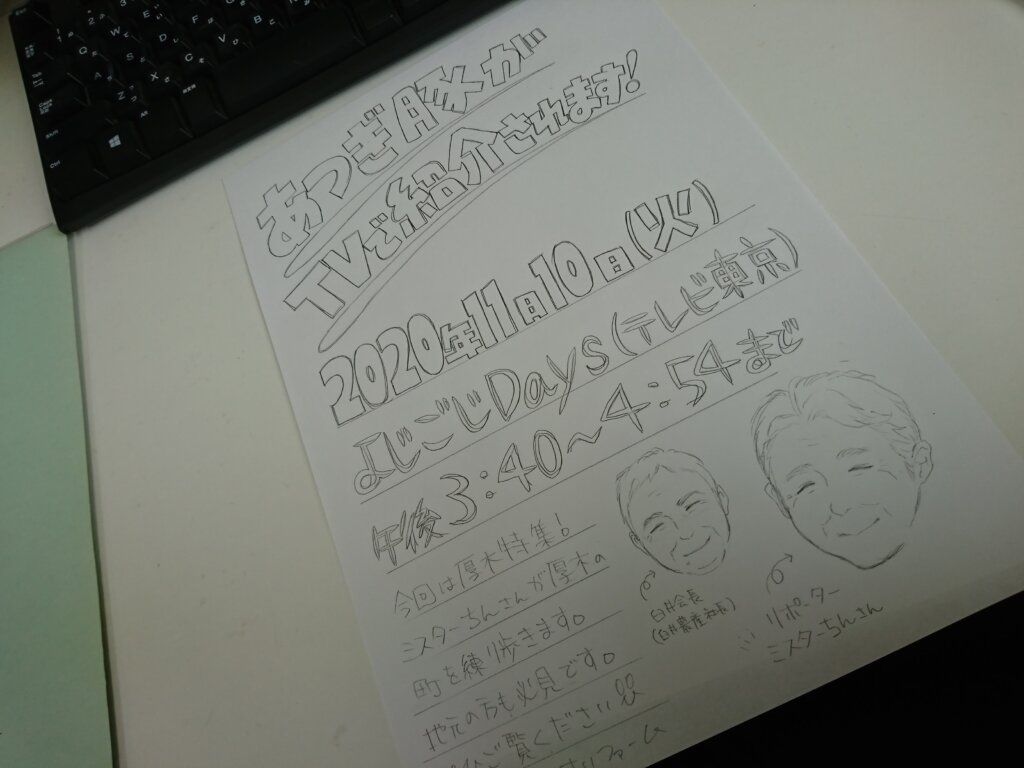 あつぎ豚が
TVで紹介されます!
2020年11月10日(火)
よじごじDays(テレビ東京)
午後3:40〜4:54まで
今回は厚木特集!
ミスターちんさんが厚木の
町を練り歩きます。
地元の方も必見です。
ご覧ください!!
ファーム
白井会長
(臼井農産社長)
リポーター
ミスターちんさん